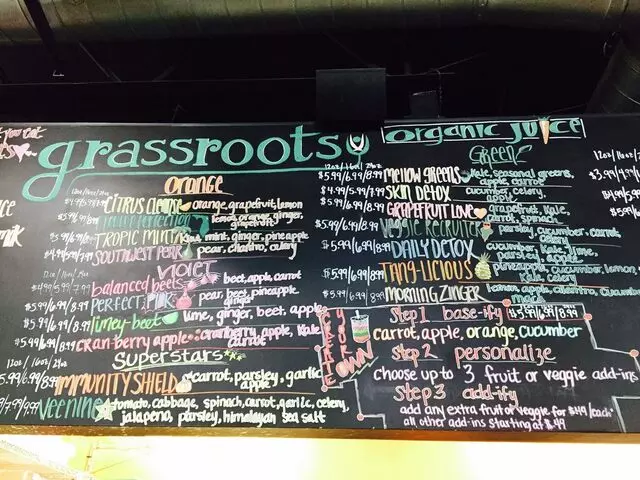 you eat
grassroots
12oz/16oz/24oz
orange
$4.99/5.99/7.99 CITRUS cleanse orange, grapefruit, lemon
TROPIC minting mint, ginger, pineapple
SOUTHWEST PEAR pear, cilantro, celery
12oz/16oz/24oz
violet
balanced beets beet, apple, carrot
$5.99/6.99/8.99 PERFECT pear, beet, pineapple, ginger
$5.99/6.99/8.99 limey-beet lime, ginger, beet, apple
$5.99/6.99/8.99 cran-berry apple cranberry, apple, kale, carrot
Superstars
12oz/16oz/24oz
5.99/6.99/8.99 IMMUNITY SHIELD carrot, parsley, garlic, apple
veenine tomato, cabbage, spinach, carrot, garlic, celery,
jalapeno, parsley, himalayan sea salt
organic juice
Green
12oz/16oz/24oz
$5.99/6.99/8.99 mellow greens kale, seasonal greens, apple, carrot
$4.99/5.99/7.99 SKIN DETOX cucumber, celery, apple
$5.99/6.99/8.99 GRAPEFRUIT LOVE grapefruit, kale, carrot, spinach
$5.99/6.99/8.99 VEGGIE RECRUITER parsley, cucumber, carrot, celery
$5.99/6.99/8.99 DAILY DETOX cucumber, kale, lime, parsley, apple
$5.99/6.99/8.99 TANG-LICIOUS pineapple, cucumber, lemon, kale
$5.99/6.99/8.99 MORNING ZINGER lemon, kale, cilantro, cucumber,
CREATE YOUR OWN
Step 1 base-ify $5.99/6.99/8.99
carrot, apple, orange, cucumber
Step 2 personalize
choose up to 3 fruit or veggie add-ins
Step 3 add-ify
add any extra fruit or veggie for $.49/each
all other add-ins starting at $.49